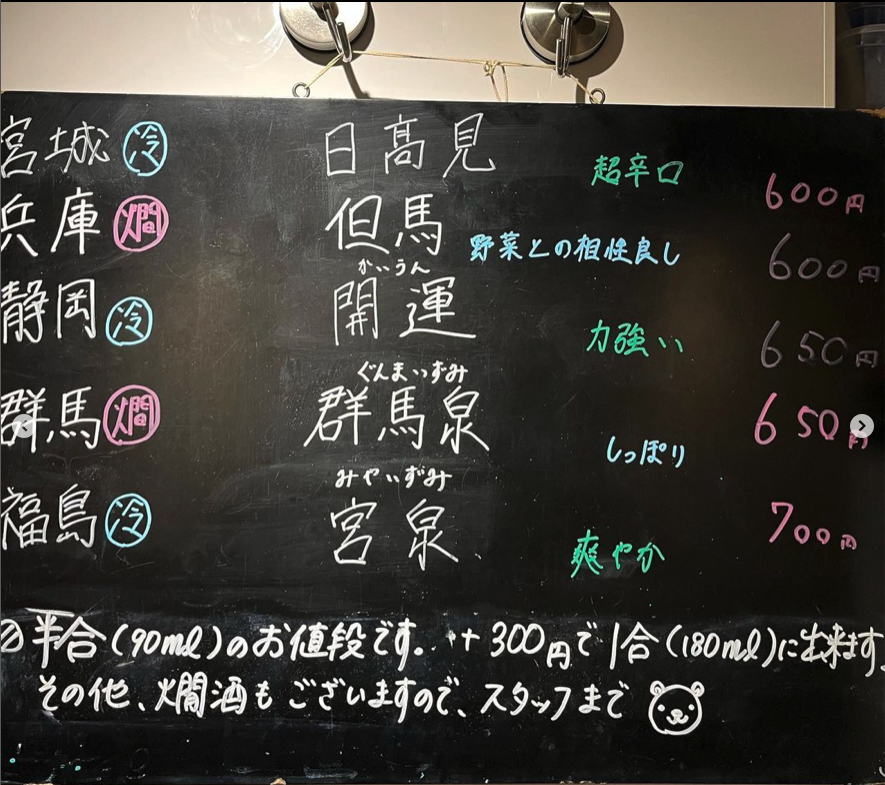 宮城 冷 日高見 超辛口 600円
兵庫 燗 但馬 野菜との相性良し 600円
かいうん
静岡 冷 開運 力強い 650円
ぐんまいずみ
群馬 燗 群馬泉 しっぽり 650円
みやいずみ
福島 冷 宮泉 爽やか 700円
半合(90ml)のお値段です。++300円で1合(180ml)に出来ます。
その他、燗酒もございますので、スタッフまで